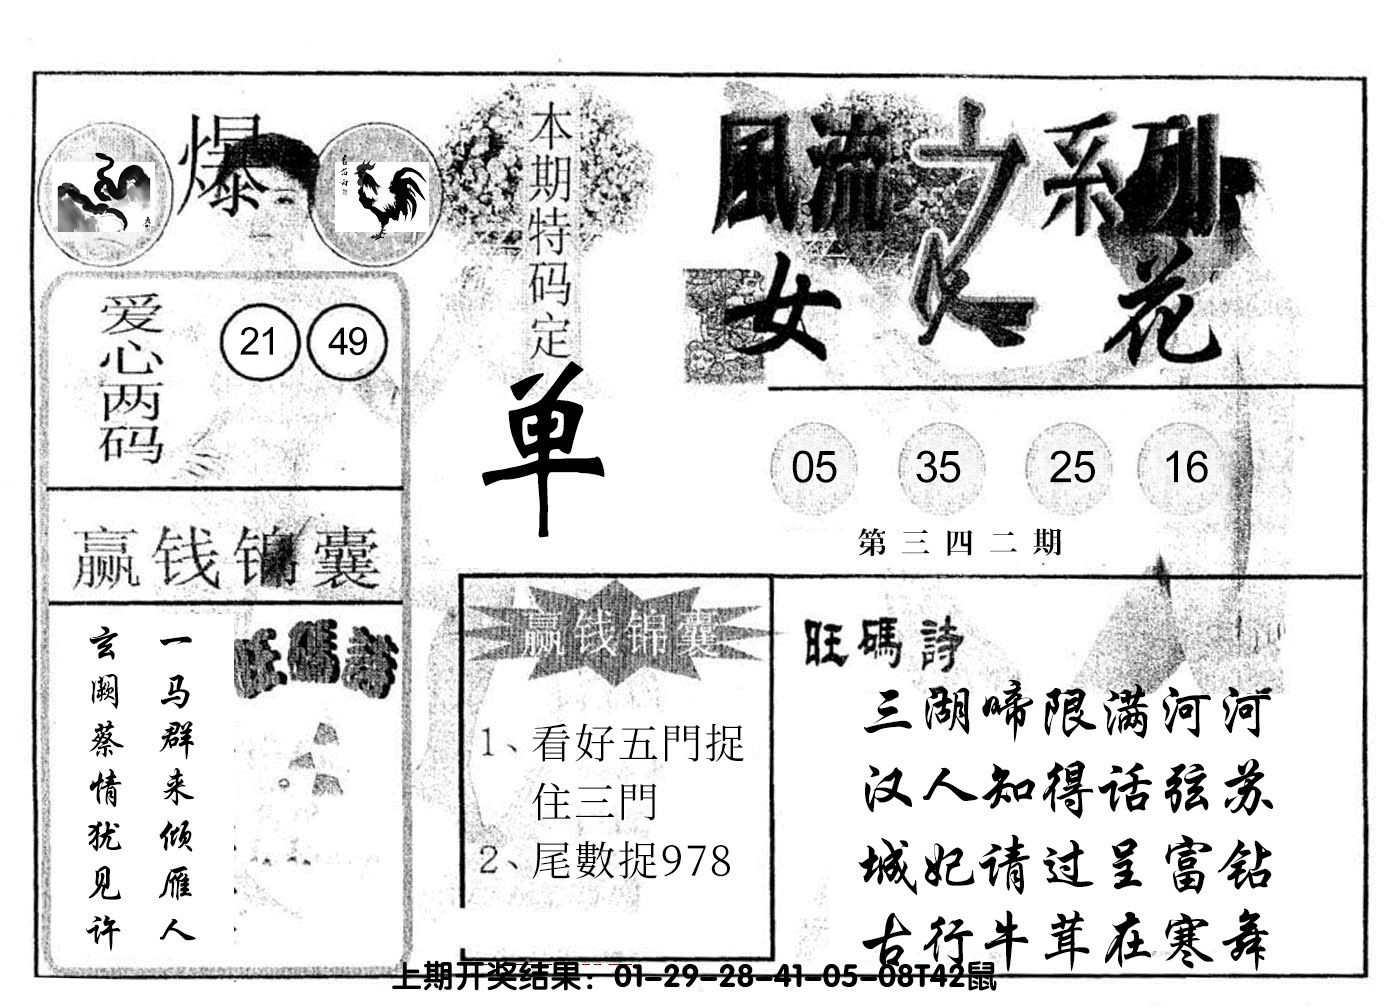 爆
本期特码定
单
風流之系列
女人花
爱心两码
21 49
05 35 25 16
第三四二期
赢钱锦囊
一马群来倾雁人
玄阙蔡情犹见许
旺碼詩
赢钱锦囊
1、看好五門捉
住三門
2、尾數捉978
旺碼詩
三湖啼限满河河
汉人知得话弦苏
城妃请过呈富钻
古行牛茸在寒舞
上期开奖结果：01-29-28-41-05-08T42鼠